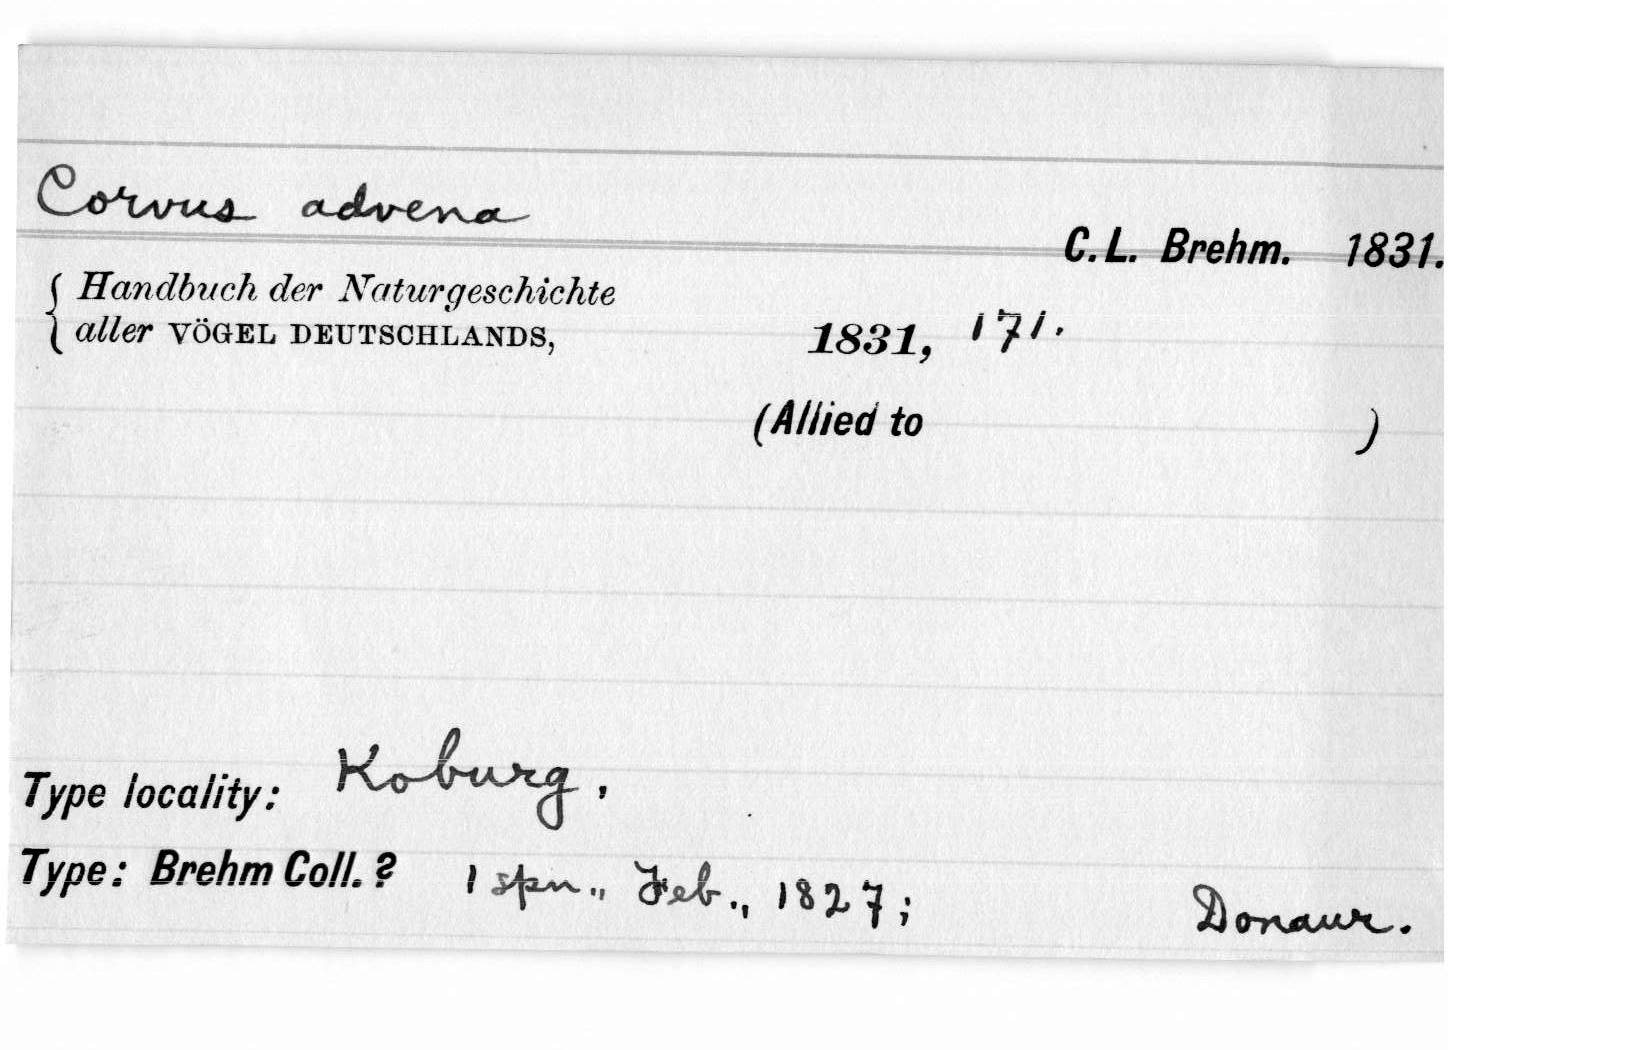 Corvus advena
C. L. Brehm. 1831.
{ Handbuch der Naturgeschichte
aller VÖGEL DEUTSCHLANDS, 1831, 171.
(Allied to )
Type locality: Koburg.
Type: Brehm Coll. ? 1 spn., Feb., 1827; Donaur.